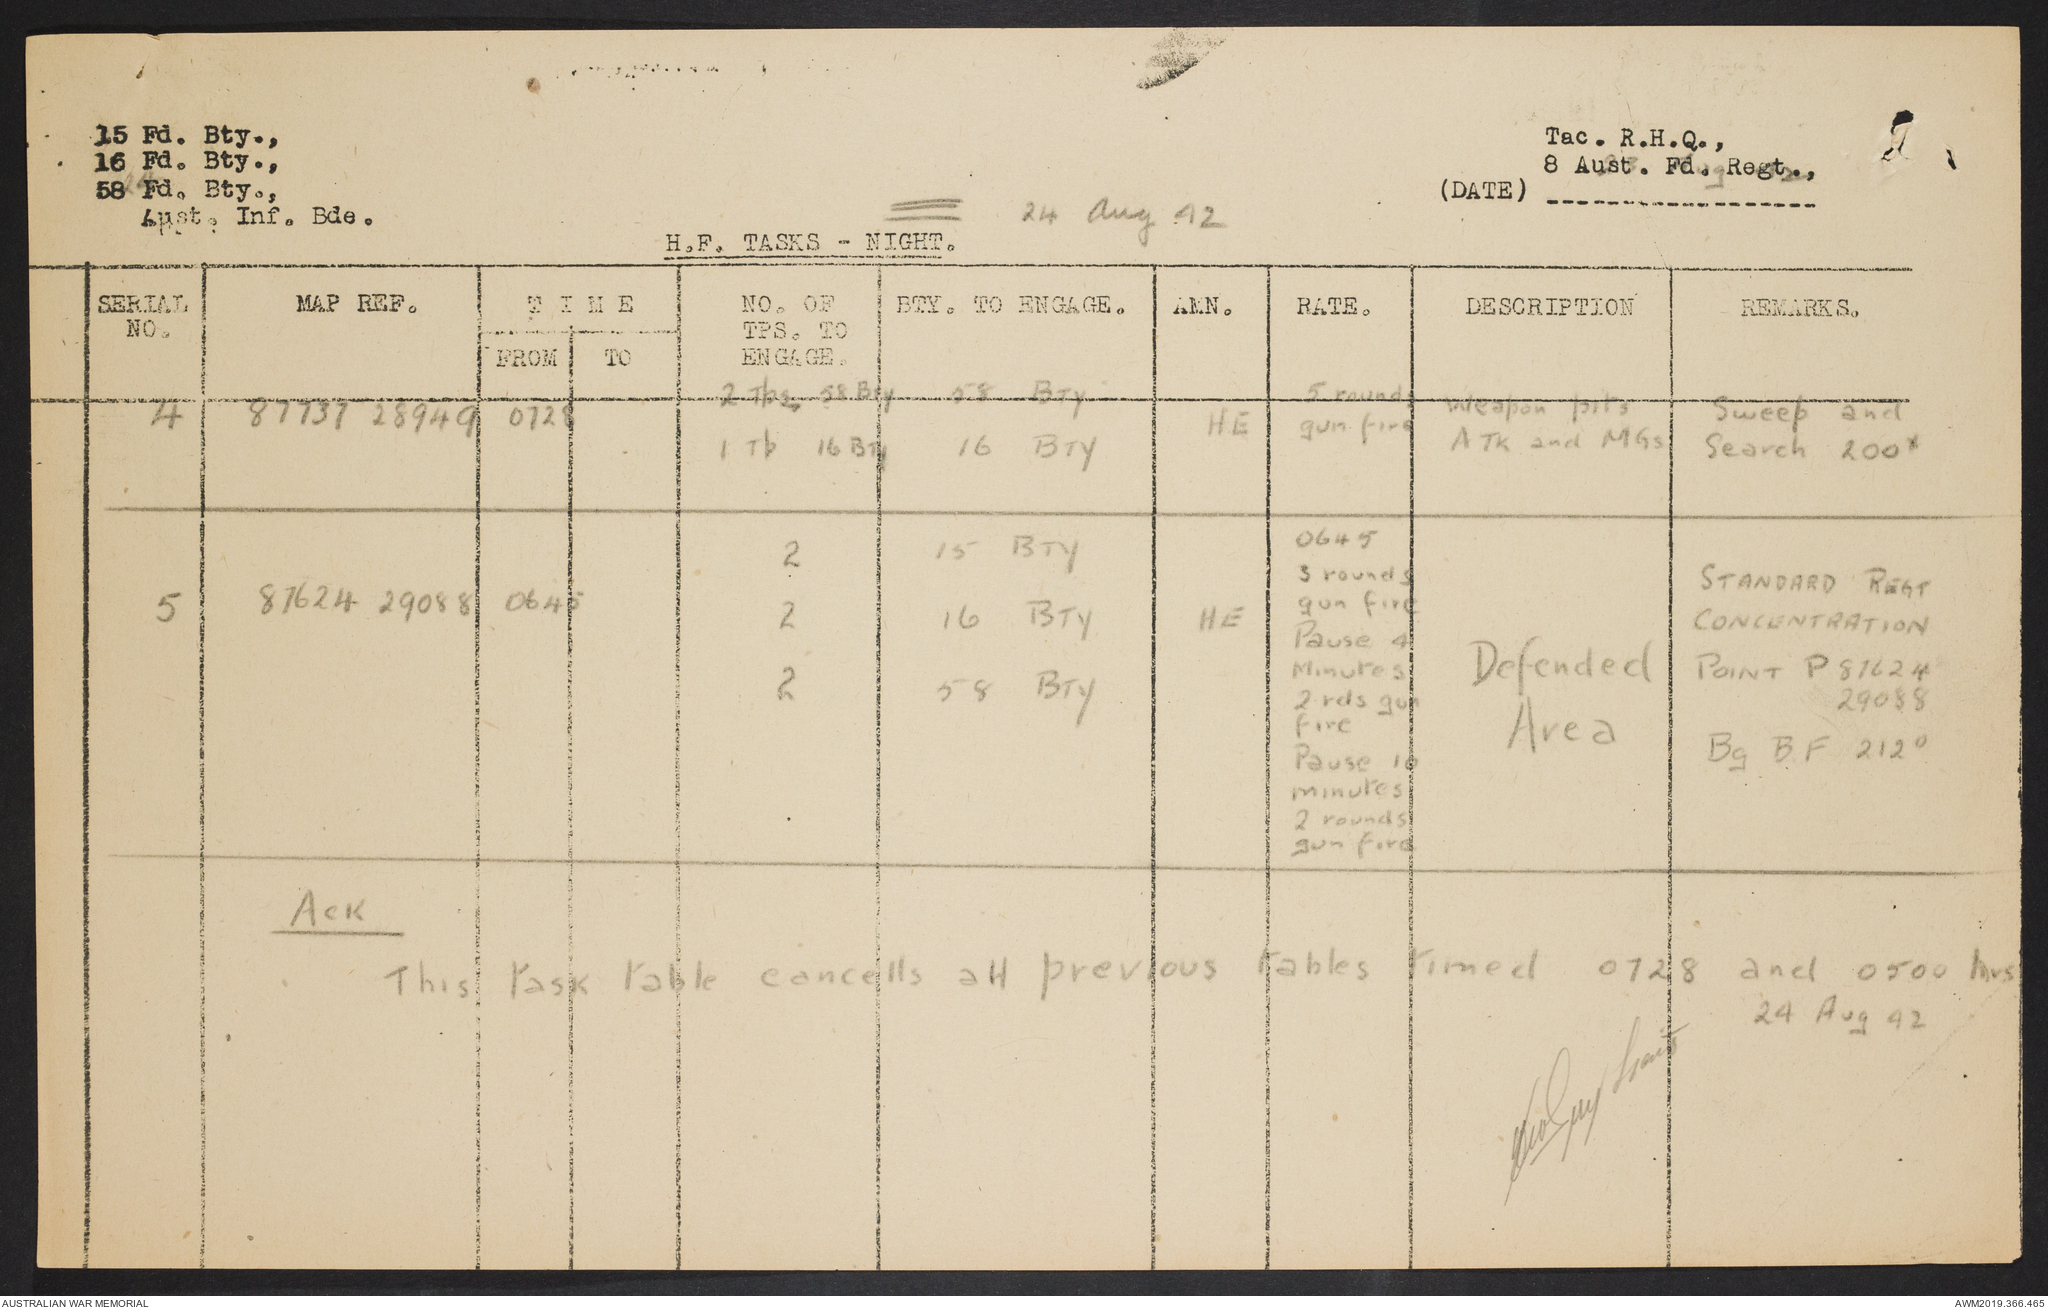 15 Fd. Bty.,
16 Fd. Bty.,
58 Fd. Bty.,
Aust. Inf. Bde.
Tac. R.H.Q.,
8 Aust. Fd. Regt.,
(DATE) ------------------
24 Aug 42
H.F. TASKS - NIGHT.
SERIAL NO.
MAP REF.
TIME
FROM
TO
NO. OF TPS. TO ENGAGE.
BTY. TO ENGAGE.
AMN.
RATE.
DESCRIPTION
REMARKS.
4
87737 28949
0728
2 Tps 58 Bty
1 Tp 16 Bty
58 Bty
16 Bty
HE
5 rounds
gun fire
Weapon pits
ATK and MGs
Sweep and
Search 200x
5
87624 29088
0645
2
2
2
15 Bty
16 Bty
58 Bty
HE
0645
3 rounds
gun fire
Pause 4
Minutes
2 rds gun
fire
Pause 10
minutes
2 rounds
gun fire
Defended
Area
STANDARD REGT
CONCENTRATION
POINT P 87624
29088
Bg BF 212°
Ack
This task table cancells all previous tables timed 0728 and 0500 hrs
24 Aug 42
AUSTRALIAN WAR MEMORIAL
AWM2019.366.465